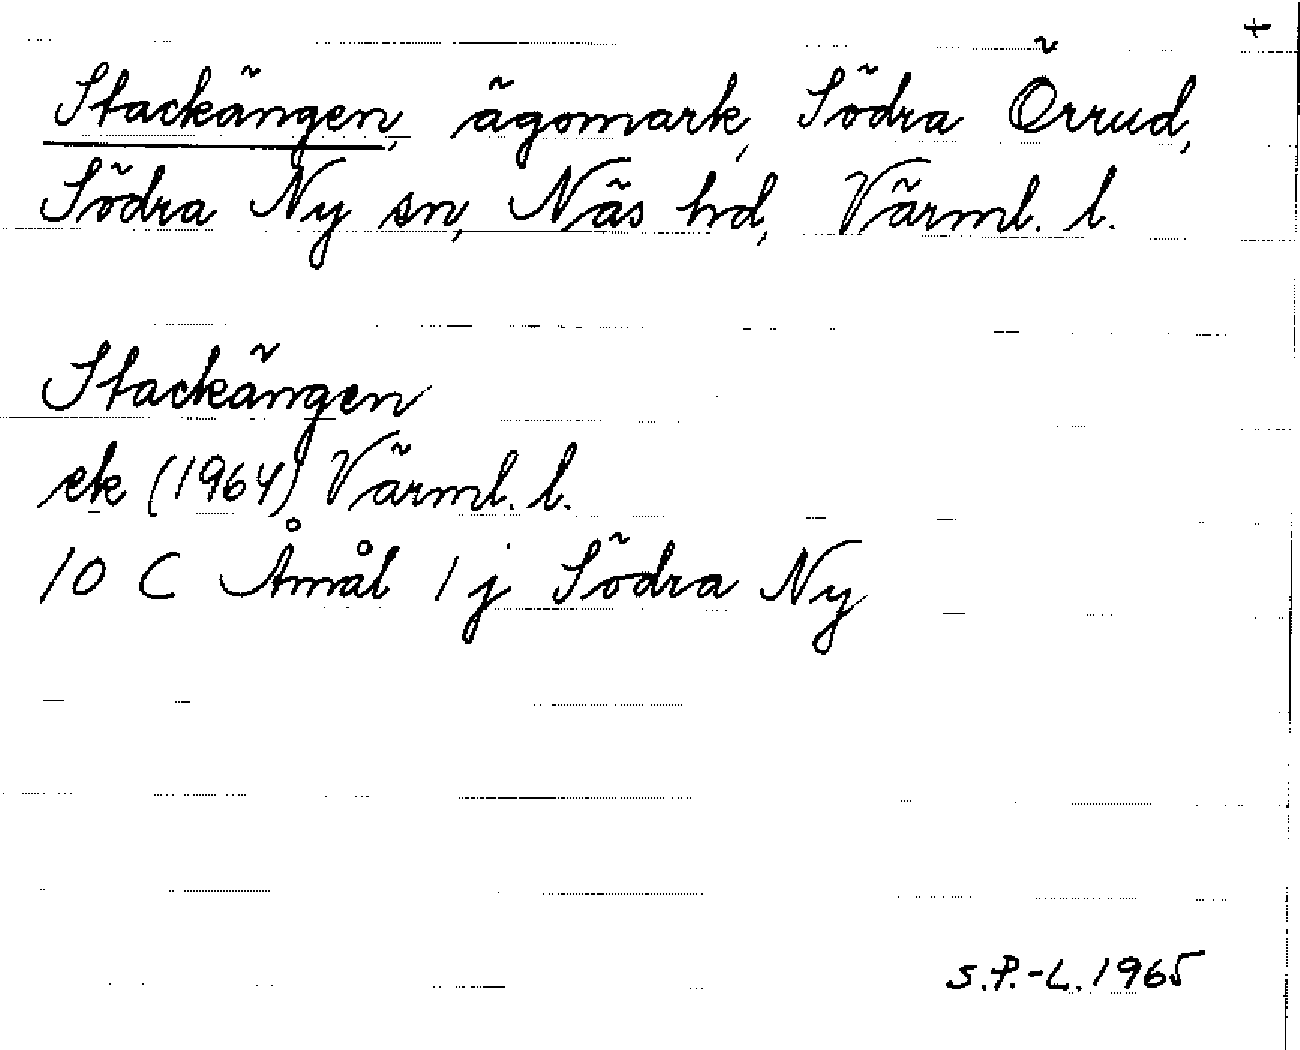 Stackängen, ägomark, Södra Örrud,
Södra Ny sn, Näs hd, Värml. l.
Stackängen
ek (1964) Värml. l.
10 C Åmål 1 j Södra Ny
S.P.-L. 1965